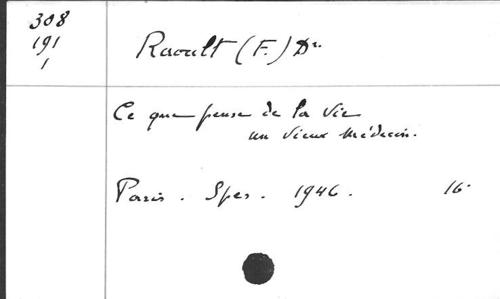 308
191
1
Raoult (F.) Dr.
Ce que pense de la vie
un vieux médecin.
Paris. Spes. 1946. 16.